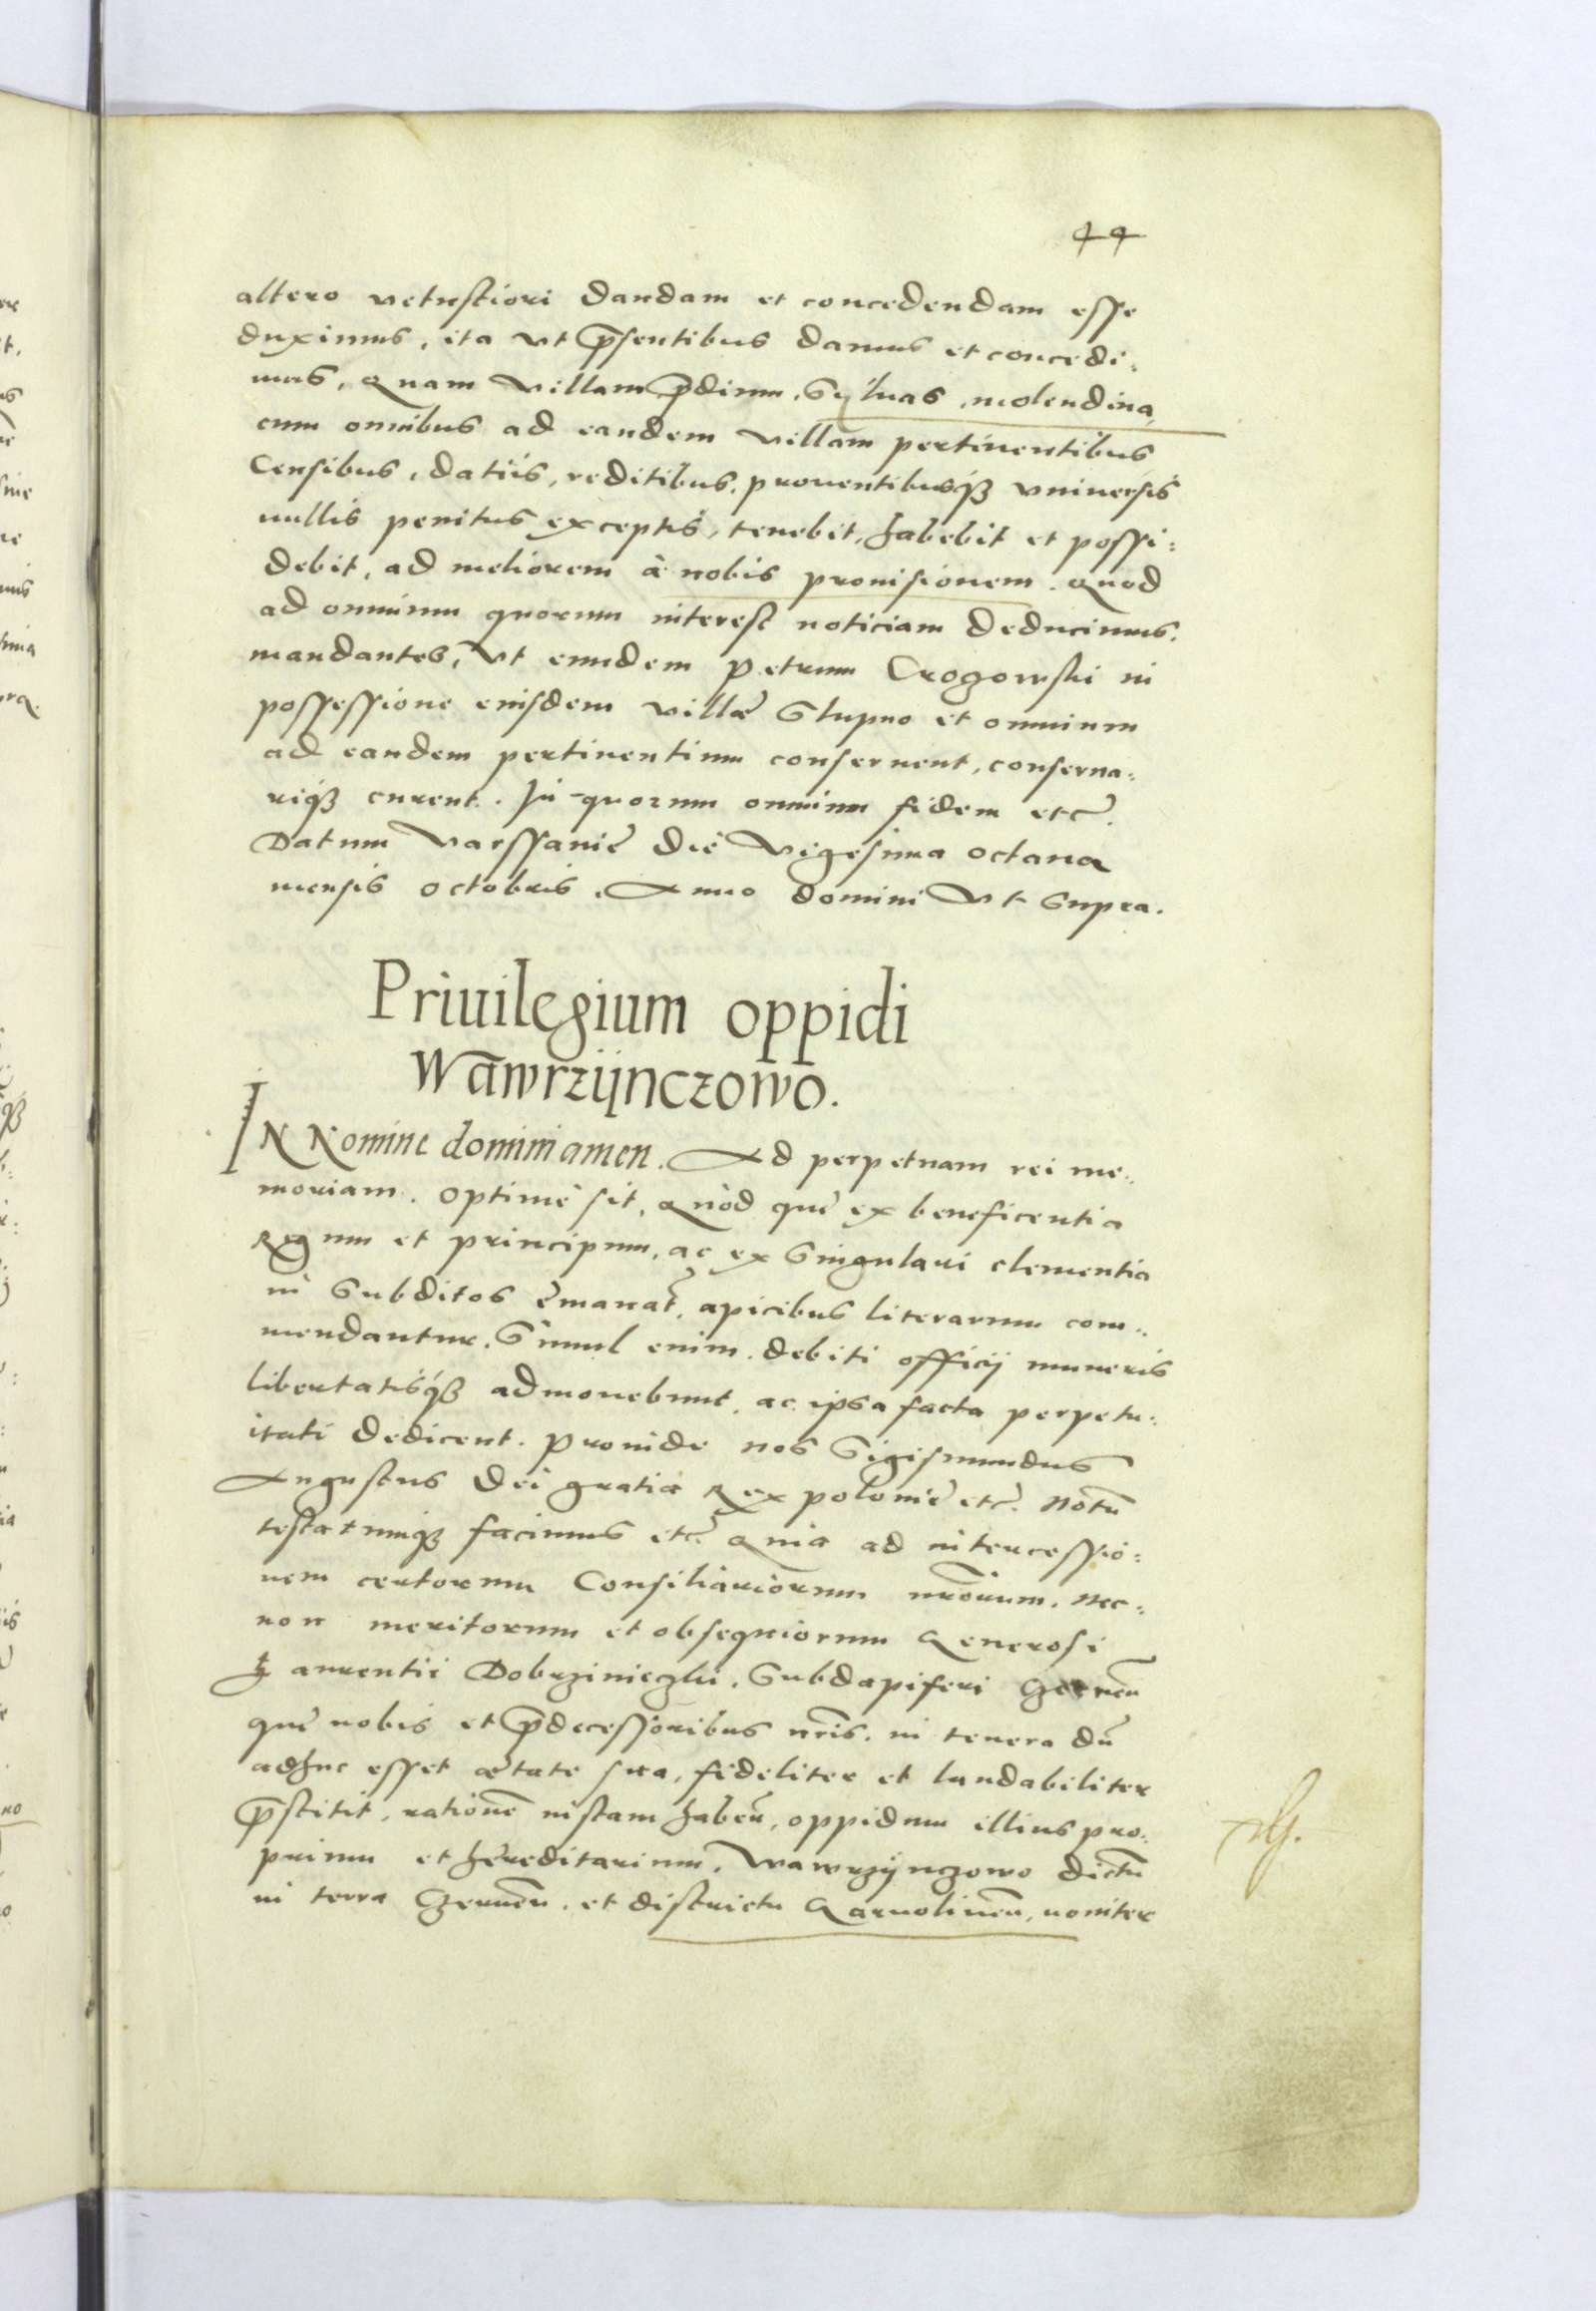 44
altero vetustiori dandam et concedendam esse
duximus, ita vt p̄sentibus damus et concedi:
mus, Quam villam, p̄dium, Syluas, molendina,
cum omnibus ad eandem villam pertinentibus
Censibus, datiis, reditibus, prouentibusqȝ vniuersis
nullis penitus exceptis, tenebit, habebit et possi:
debit, ad meliorem à nobis prouisionem. Quod
ad omnium quorum interest noticiam deducimus,
mandantes, vt eundem Petrum Crogowski in
possessione eiusdem villæ Slupno et omnium
ad eandem pertinentium conseruent, conserua:
riqȝ curent. In quorum omnium fidem etc̄.
Datum Varssauie die vigesima octaua
mensis octobris. Anno domini vt Supra.
Priuilegium oppidi
Wawrzijnczowo.
IN Nomine domini amen. Ad perpetuam rei me:
moriam. optimè sit, Quòd que ex beneficentia
Regum et principum, ac ex Singulari clementia
in Subditos emanāt, apicibus literarum com:
mendantur. Simul enim debiti officij muneris
libertatisqȝ admonebunt, ac ipsa facta perpetu:
itati dedicent. Proinde nos Sigismundus
Augustus Dei gratia Rex polonie etc̄. Notū
testatumqȝ facimus etc̄. Quia ad intercessio:
nem certorum Consiliariorum nr̄orum. Nec:
non meritorum et obsequiorum Generosi
Laurentii Dobrzinieczki, Subdapiferi Czernen̄
que nobis et p̄decessoribus nr̄is, in tenera dū
adhuc esset ætate sua, fideliter et laudabiliter
p̄stitit, rationē iustam haben̄, oppidum illius pro:
prium et hereditarium, Wawrzijnczowo dictū
in terra Czernen̄. et districtu Garuolinen̄, nouiter